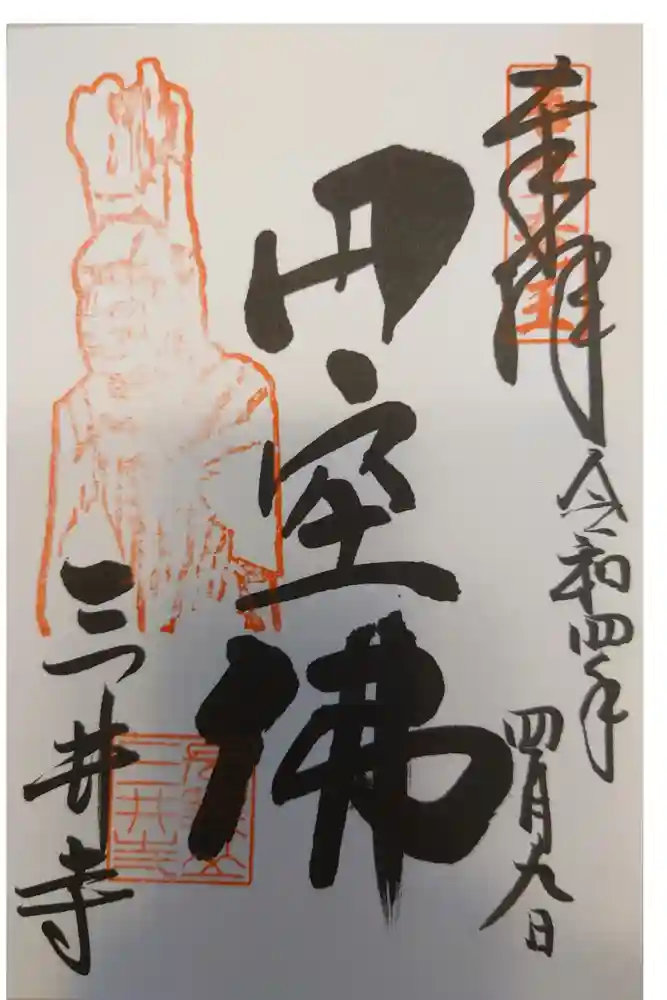 奉拝
令和四年
四月九日
円空佛
三井寺